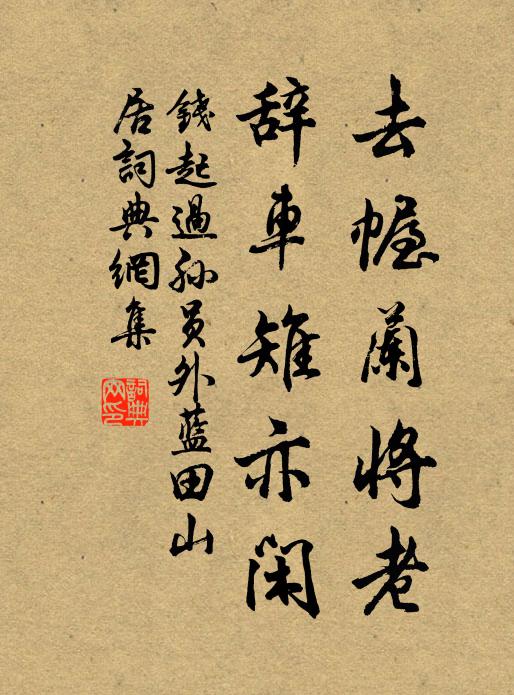 去幄蘭將老
辞車雉亦閑
錢起過孫員外藍田山
居詞典網集
詞典
网印